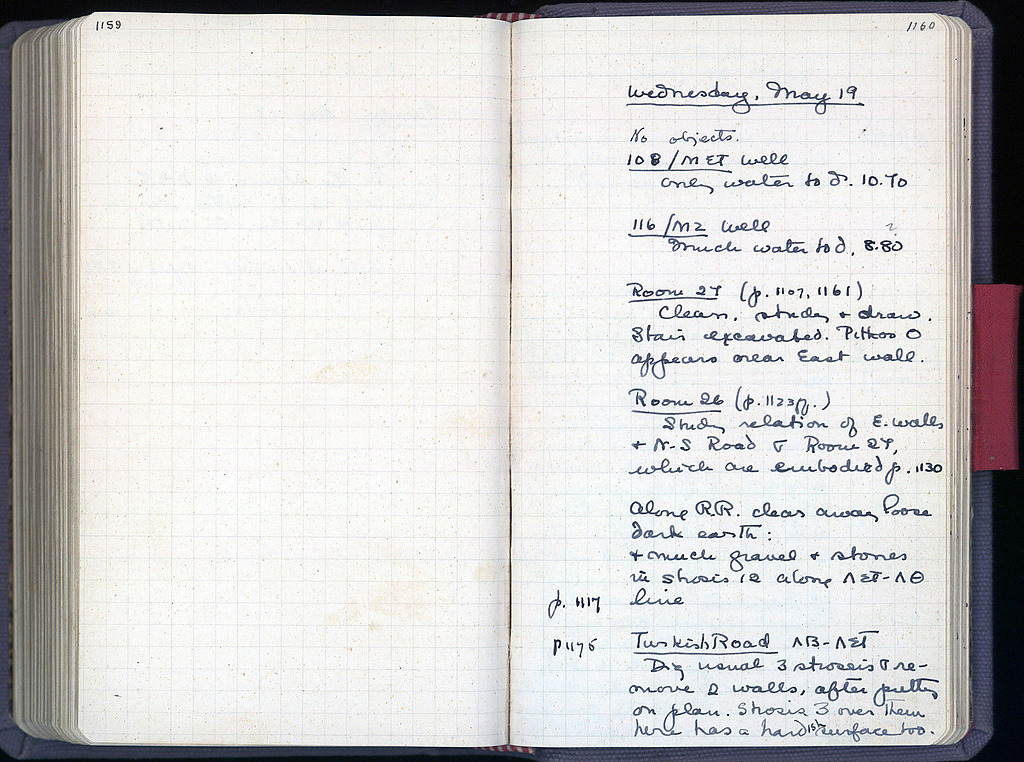 1159
1160
Wednesday, May 19
No objects.
108/ΜΣΤ well
only water to d. 10.70
116/ΜΖ well
?
Much water to d. 8.80
Room 27 (p. 1107, 1161)
Clean, study + draw.
Stair excavated. Pithos O
appears near East wall.
Room 26 (p. 1123ff.)
Study relation of E. walls
+ N-S Road & Room 27,
which are embodied p. 1130
Along R.R. clear away loose
dark earth:
+ much gravel + stones
in strosis 12 along ΛΣΤ-ΛΘ
p. 1117 line
p 1175 Turkish Road ΛΒ-ΛΣΤ
Dig usual 3 stroseis & re-
move 2 walls, after putting
on plan. Strosis 3 over them
here has a hard 1st surface too.